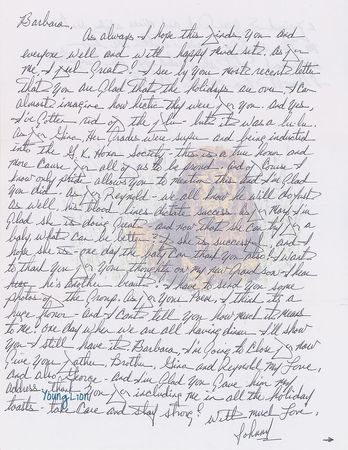 Barbara,
As always I hope this finds you and
everyone well and with happy mind sets. As for
me, I feel Great! I see by your most recent letter
that you are Glad that the holidays are over. I can
almost imagine how hectic they were for you. And yes,
I've Gotten rid of the flu - but it was a lu lu.
As for Gina. Her Grades were super and being inducted
into the G.K. Honor Society - this is a true honor and
more cause for all of us to be proud. And of course I
know only phila allows you to mention this but I'm Glad
you did. As for Reynold - we all know he will do just
as well. his blood lines dictate success. As for May I'm
Glad she is doing Great - and now that she can for a
baby what can be better? If she is successful and I
hope she is one day the baby can thank you also. I want
to thank you for your thoughts on my new Grandson. I hear
he's another beaut. I have to send you some
photos of the Group. As for your Poem I think its a
huge honor - and I can't tell you how much it means
to me. One day when we are all having dinner I'll show
you I still have it. Barbara, I'm going to close for now
Give your Father, Brother, Gina and Reynold my Love,
and also George - and I'm Glad you gave him my
address. thank you for including me in all the holiday
Young Lion
toasts - take care and stay strong! With much Love,
Johnny
→